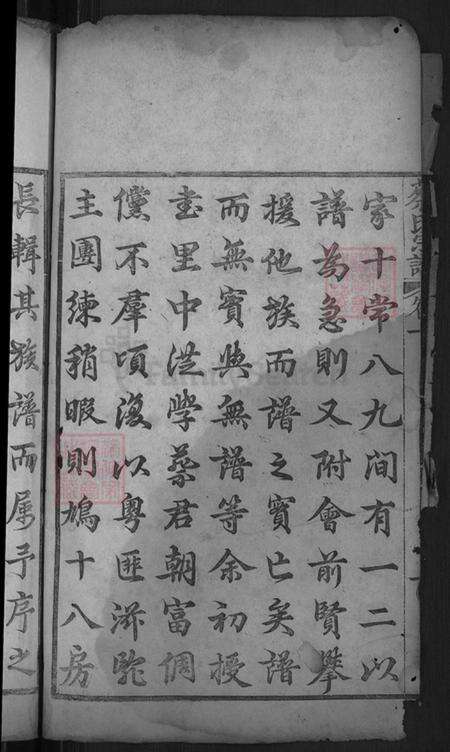 家十常八九间有一二以
譜為急則又附會前賢攀
援他族而譜之實亡矣譜
而無實與無譜等余初授
書里中泮學蔡君朝富倜
儻不羣頃復以粤匪滋
主團練稍暇則鳩十八房
長輯其族譜而属予序之
蔡氏宗譜
FamilySearch